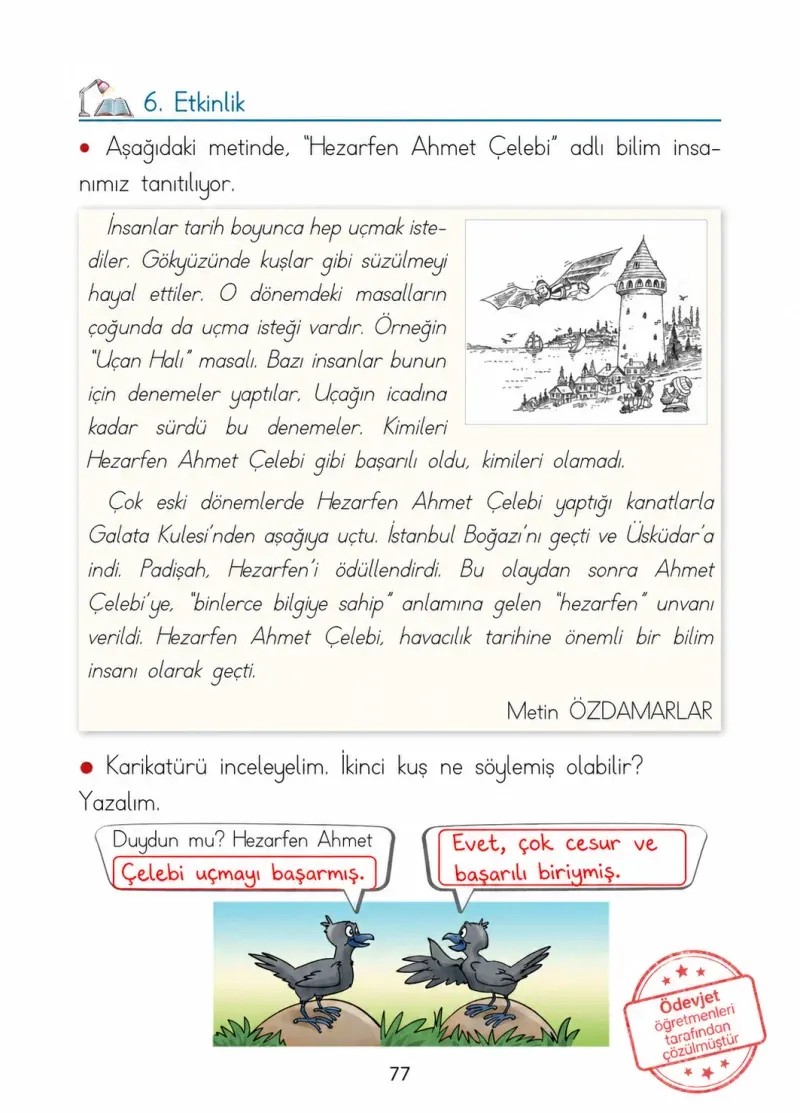 6. Etkinlik
• Aşağıdaki metinde, "Hezarfen Ahmet Çelebi" adlı bilim insa-
nımız tanıtılıyor.
İnsanlar tarih boyunca hep uçmak iste-
diler. Gökyüzünde kuşlar gibi süzülmeyi
hayal ettiler. O dönemdeki masalların
çoğunda da uçma isteği vardır. Örneğin
"Uçan Halı" masalı. Bazı insanlar bunun
için denemeler yaptılar. Uçağın icadına
kadar sürdü bu denemeler. Kimileri
Hezarfen Ahmet Çelebi gibi başarılı oldu, kimileri olamadı.
Çok eski dönemlerde Hezarfen Ahmet Çelebi yaptığı kanatlarla
Galata Kulesi'nden aşağıya uçtu. İstanbul Boğazı'nı geçti ve Üsküdar'a
indi. Padişah, Hezarfen'i ödüllendirdi. Bu olaydan sonra Ahmet
Çelebi'ye, "binlerce bilgiye sahip" anlamına gelen "hezarfen" unvanı
verildi. Hezarfen Ahmet Çelebi, havacılık tarihine önemli bir bilim
insanı olarak geçti.
Metin ÖZDAMARLAR
• Karikatürü inceleyelim. İkinci kuş ne söylemiş olabilir?
Yazalım.
Duydun mu? Hezarfen Ahmet
Çelebi uçmayı başarmış.
Evet, çok cesur ve
başarılı biriymiş.
Ödevjet
öğretmenleri
tarafından
çözülmüştür
77